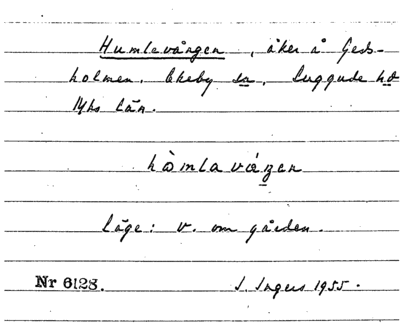 Humlevången, åker å Geds-
holmen. Ekeby sn, Luggude hd
Mhs län.
hòmlavá̱ŋen
Läge: V. om gården.
Nr 6128. I. Ingers 1955.